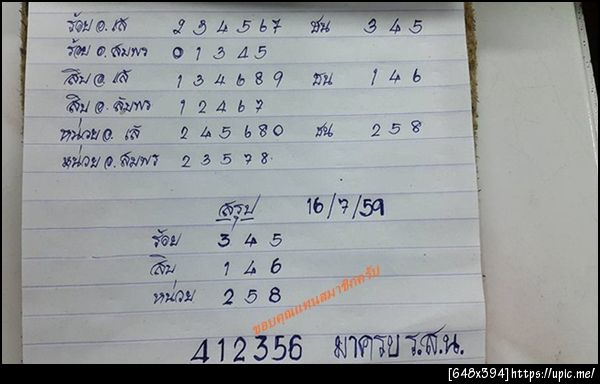 ร้อย อ. เส 2 3 4 5 6 7 ชน 3 4 5
ร้อย อ. สมพร 0 1 3 4 5
สิบ อ. เส 1 3 4 6 8 9 ชน 1 4 6
สิบ อ. สมพร 1 2 4 6 7
หน่วย อ. เส 2 4 5 6 8 0 ชน 2 5 8
หน่วย อ. สมพร 2 3 5 7 8
สรุป 16/7/59
ร้อย 3 4 5
สิบ 1 4 6
หน่วย 2 5 8
ขอบคุณแทนสมาชิกครับ
412356 มาครบ ร.ส.น.
[648x394]https://upic.me/